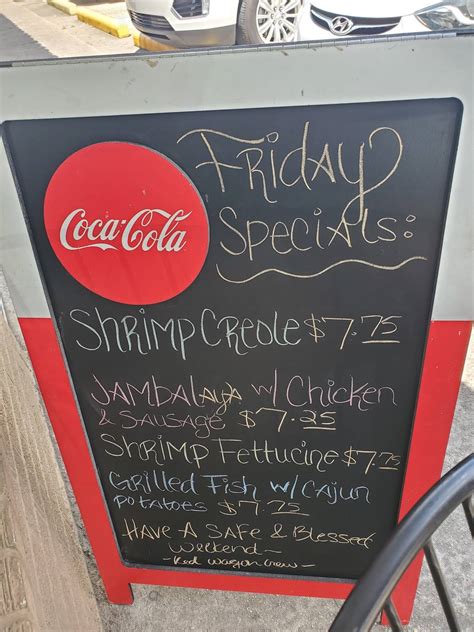 Coca-Cola
Friday
Specials:
Shrimp Creole $7.75
Jambalaya w/ Chicken
& Sausage $7.25
Shrimp Fettucine $7.75
Grilled Fish w/ Cajun
potatoes $7.25
Have A Safe & Blessed
weekend~
~Red Wagon Crew~